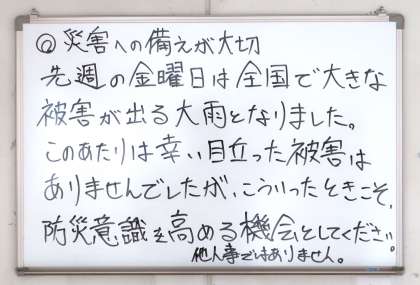 ◎災害への備えが大切
先週の金曜日は全国で大きな
被害が出る大雨となりました。
このあたりは幸い目立った被害は
ありませんでしたが、こういったときこそ、
防災意識を高める機会としてください。
他人事ではありません。